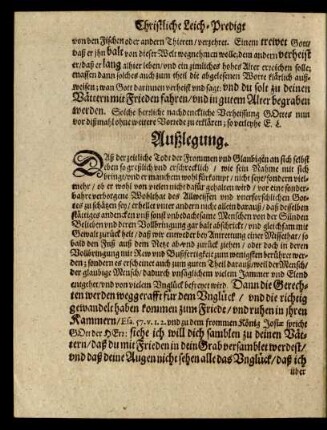 Christliche Leich-Predigt
von den Fischen oder andern Thieren / verzehret. Einem trewet Gott /
daß er ihn balt von dieser Welt wegnehmen wolle / dem andern verheist
er / daß er lang alhier leben / und ein zimliches hohes Alter erreichen solle;
massen dann solches auch zum theil die abgelesenen Worte klärlich auß-
weisen; wan Gott darinnen verheist und sagt: und du solt zu deinen
Vättern mit Frieden fahren / und in gutem Alter begraben
werden. Solche herrliche nachdenckliche Verheissung Gottes nun
vor dißmahl ohne weitere Vorrede zu erklären; so verleyhe E. L.
Außlegung.
DAß der zeitliche Todt der Frommen und Glaubigen an sich selbst
eben so greßlich und erschrecklich / wie sein Nahme mit sich
bringt / und er manchem wohl fürkompt / nicht seye / sondern viel-
mehr / ob er wohl von vielen nicht dafür gehalten wird / vor eine sonder-
bahre verborgene Wohlthat des Allweisen und unerforschlichen Got-
tes zu schätzen sey / erhellet unter andern nicht allein darauß / daß desselben
stätiges andencken uns sonst unbedachtsame Menschen von der Sünden
Belieben und deren Vollbringung gar balt abschricket / und gleichsam mit
Gewalt zurück hält / daß wir entweder bey Antrettung einer Missethat / so
bald den Fuß auß dem Netze ab- und zurück ziehen / oder doch in deren
Vollbringung mit Rew und Bußfertigkeit zum wenigsten berühret wer-
den; sondern es erscheinet auch zum guten Theil darauß / weil der Mensch /
der glaubige Mensch / dadurch unsäglichem vielem Jammer und Elend
entgehet / und von vielem Unglück befreyet wird. Dann die Gerech-
ten werden weggerafft für dem Unglück / und die richtig
gewandelt haben kommen zum Friede / und ruhen in ihren
Kammern / Esa. 57. v. 1. 2. und zu dem frommen König Josia spricht
GOtt der HErr: siehe ich will dich samblen zu deinen Vät-
tern / daß du mit Frieden in dein Grab versamblet werdest /
und daß deine Augen nicht sehen alle das Unglück / daß ich
über